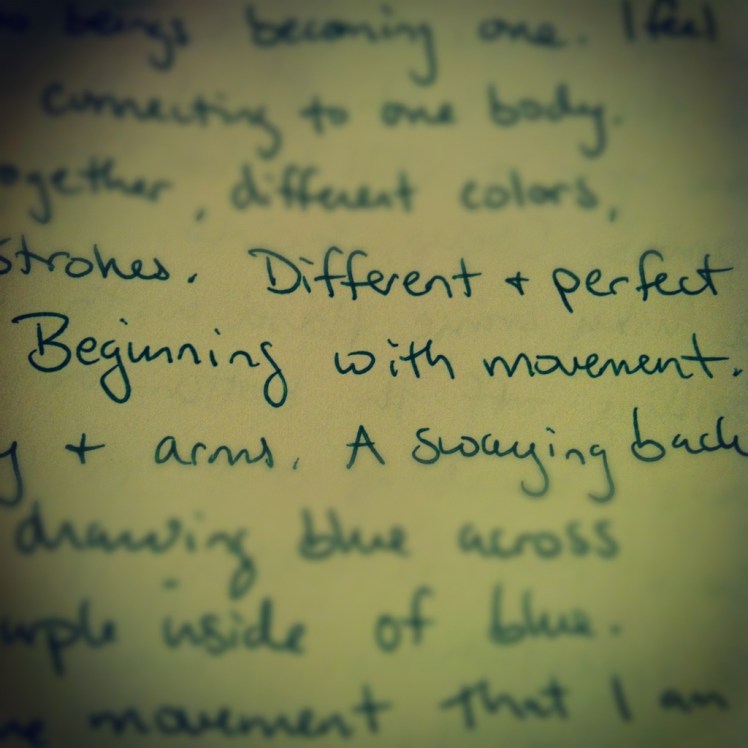 beings becoming one. I feel
connecting to one body.
ogether, different colors,
strokes. Different + perfect
Beginning with movement.
y + arms. A swaying back
drawing blue across
urple inside of blue.
movement that I am